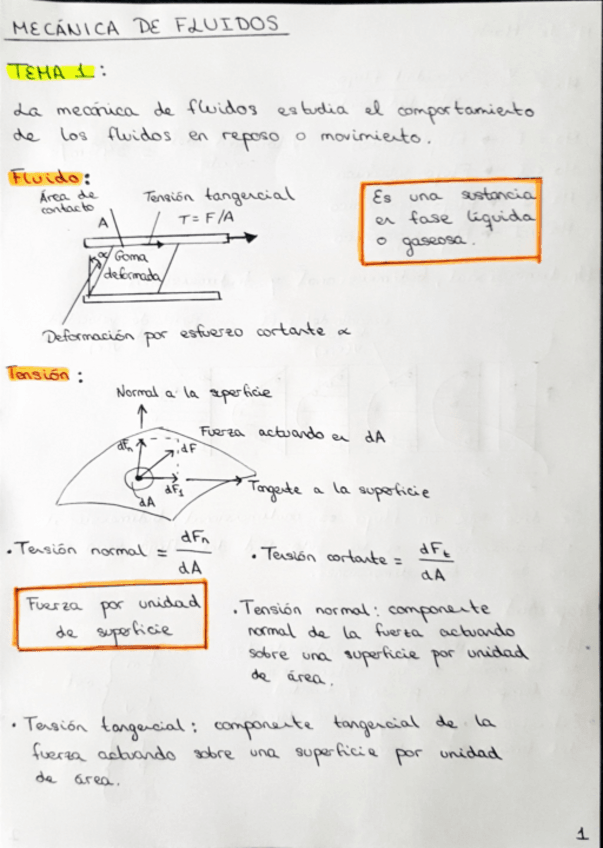 MECÁNICA DE FLUIDOS
TEMA 1:
La mecánica de fluidos estudia el comportamiento
de los fluidos en reposo o movimiento.
Fluido:
Área de
contacto
A
Tensión tangencial
T = F/A
α
Goma
deformada
Deformación por esfuerzo cortante α
Es una sustancia
en fase líquida
o gaseosa.
Tensión:
Normal a la superficie
Fuerza actuando en dA
dFn
dF
dF1
dA
Tangente a la superficie
• Tensión normal = dFn
dA
• Tensión cortante = dFt
dA
Fuerza por unidad
de superficie
• Tensión normal: componente
normal de la fuerza actuando
sobre una superficie por unidad
de área.
• Tensión tangencial: componente tangencial de la
fuerza actuando sobre una superficie por unidad
de área.
1